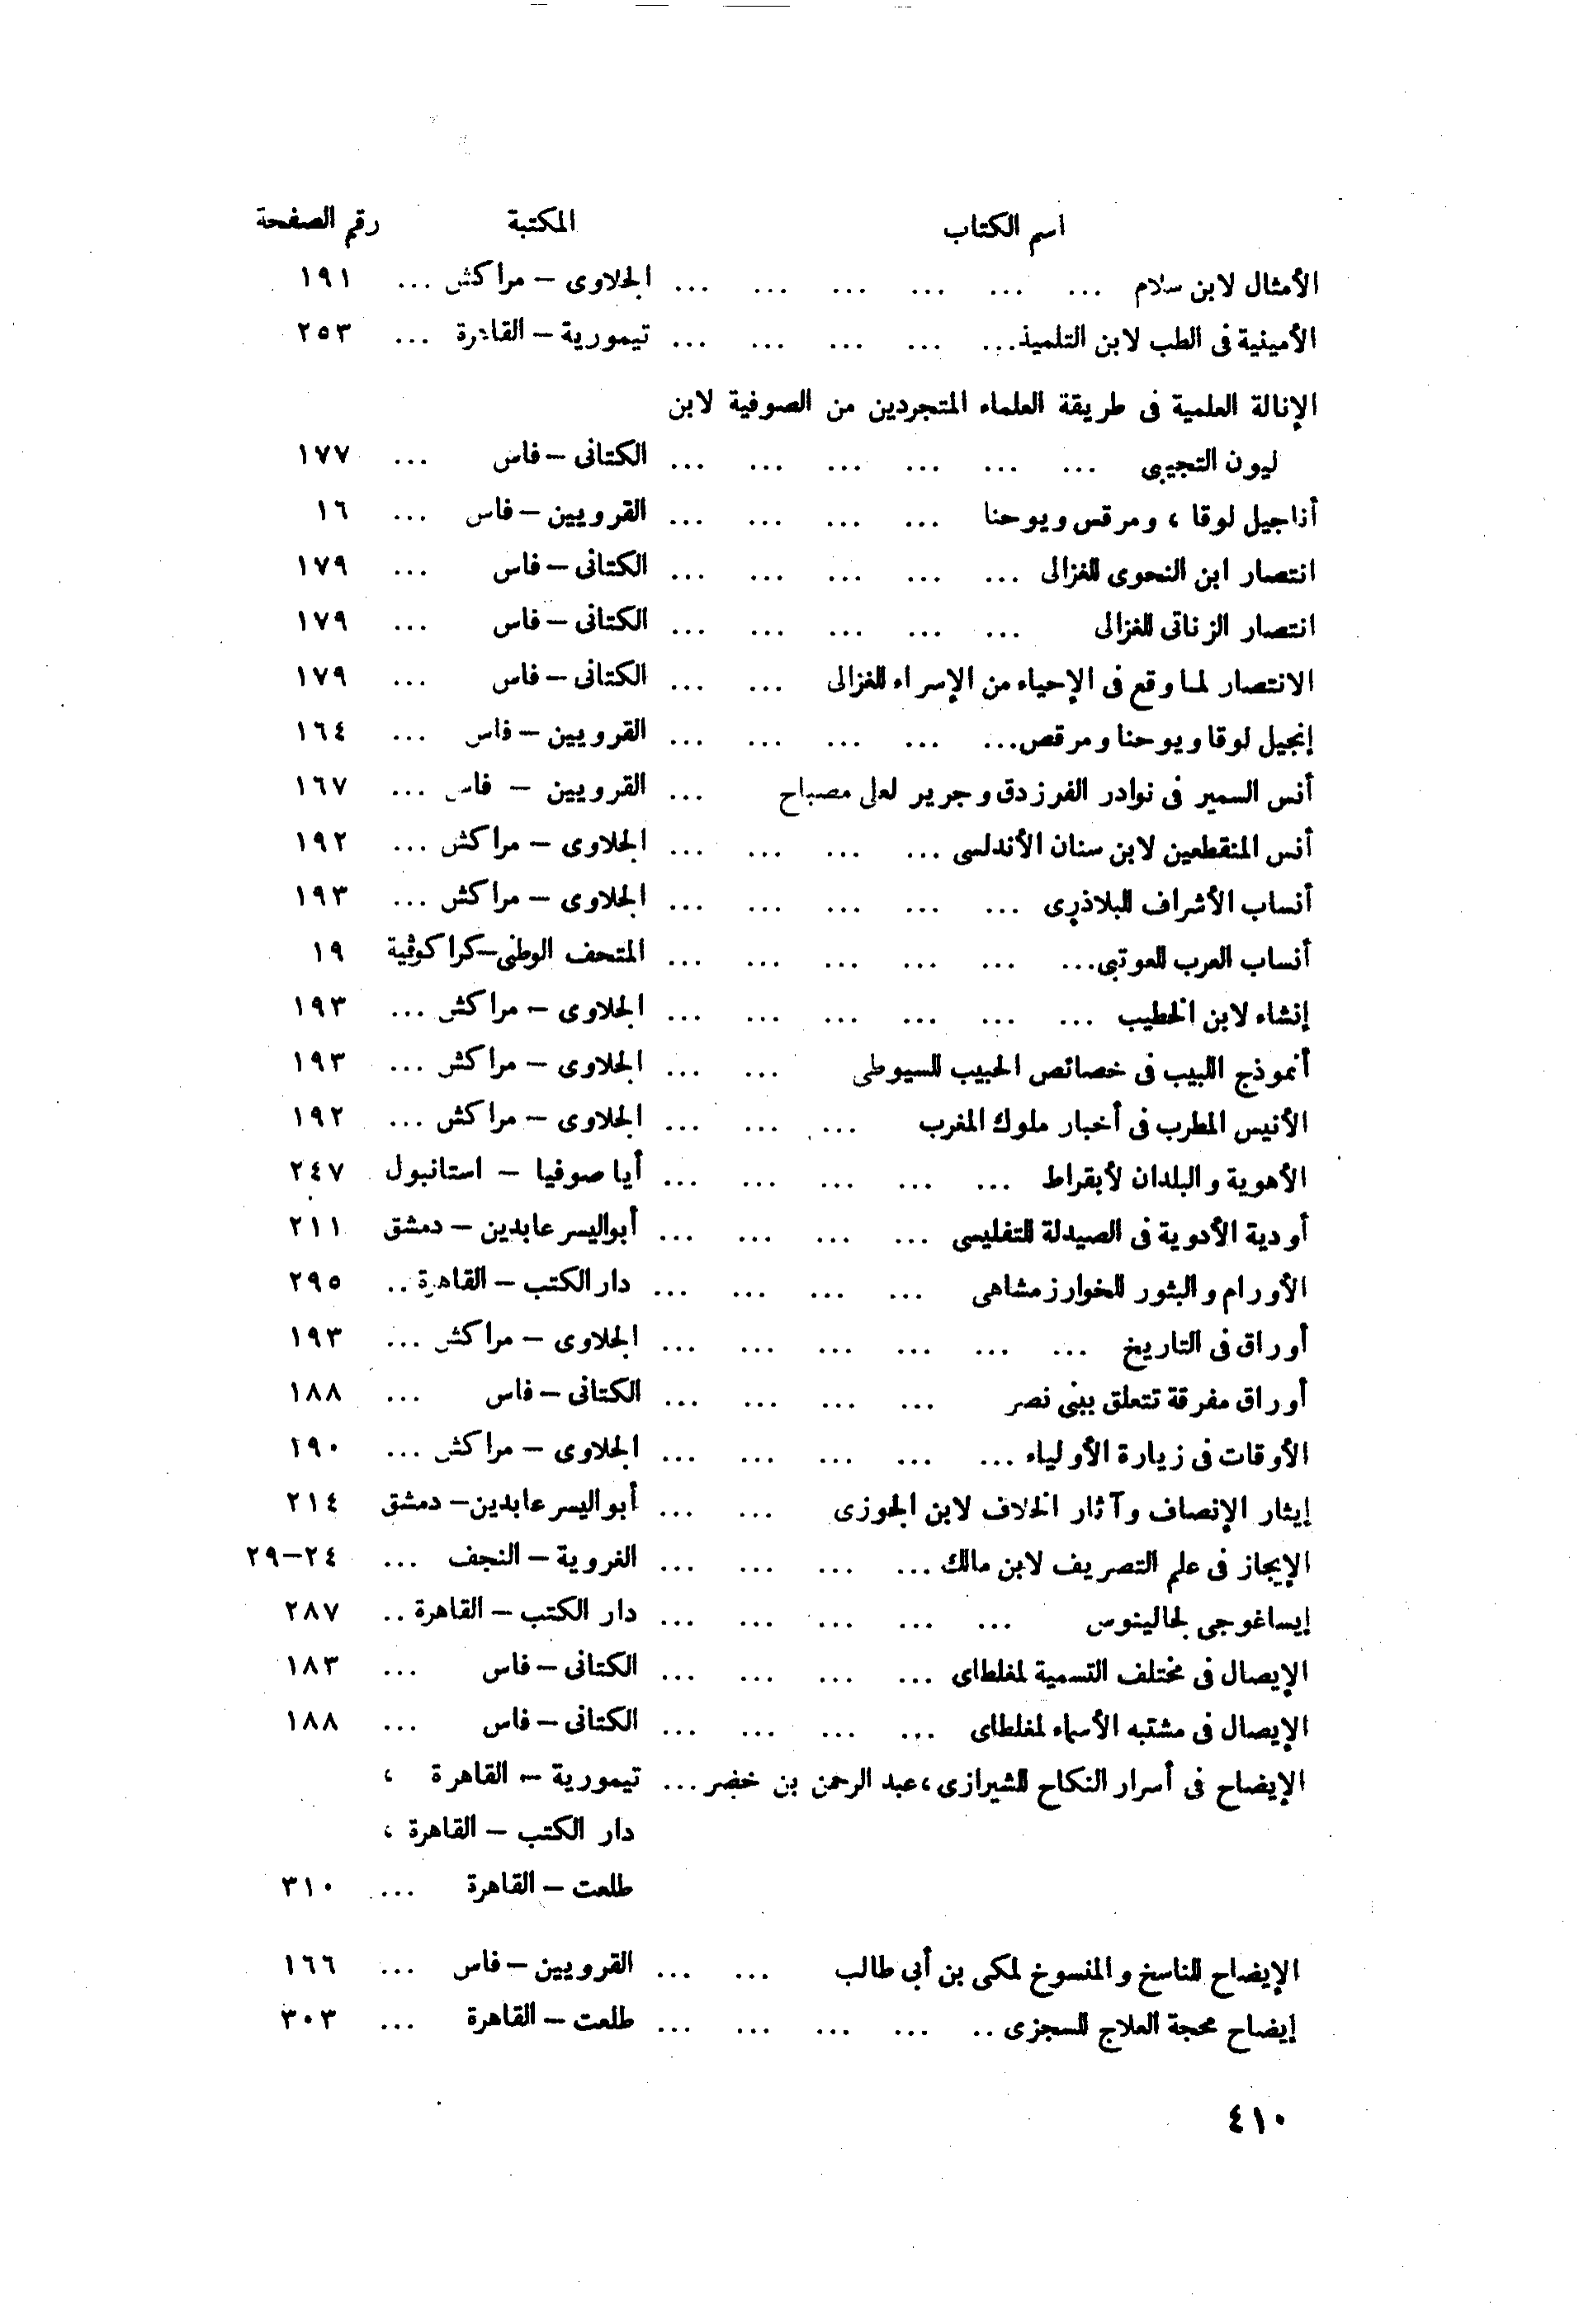 اسم الكتاب المكتبة رقم الصفحة
الأمثال لابن سلام ... ... ... ... ... ... الجلاوى – مراكش ... ١٩١
الأمينية فى الطب لابن التلميذ... ... ... ... ... تيمورية – القاهرة ... ٢٥٣
الإنالة العلمية فى طريقة العلماء المتجردين من الصوفية لابن
ليون التجيبى ... ... ... ... ... ... الكتانى – فاس ... ١٧٧
أناجيل لوقا ، ومرقس ويوحنا ... ... ... ... القرويين – فاس ... ١٦
انتصار ابن النحوى للغزالى ... ... ... ... ... الكتانى – فاس ... ١٧٩
انتصار الزناتى للغزالى ... ... ... ... ... الكتانى – فاس ... ١٧٩
الانتصار لما وقع فى الإحياء من الإسراء للغزالى ... ... الكتانى – فاس ... ١٧٩
إنجيل لوقا ويوحنا ومرقص... ... ... ... ... القرويين – فاس ... ١٦٤
أنس السمير فى نوادر الفرزدق وجرير لعلى مصباح ... القرويين – فاس ... ١٦٧
أنس المنقطعين لابن سنان الأندلسى ... ... ... ... الجلاوى – مراكش ... ١٩٢
أنساب الأشراف للبلاذرى ... ... ... ... ... الجلاوى – مراكش ... ١٩٣
أنساب العرب للعوتبى... ... ... ... ... ... المتحف الوطنى–كراكوڤية ١٩
إنشاء لابن الخطيب ... ... ... ... ... ... الجلاوى – مراكش ... ١٩٣
أنموذج اللبيب فى خصائص الحبيب للسيوطى ... ... الجلاوى – مراكش ... ١٩٣
الأنيس المطرب فى أخبار ملوك المغرب ... ... ... الجلاوى – مراكش ... ١٩٢
الأهوية والبلدان لأبقراط ... ... ... ... ... أيا صوفيا – استانبول ٢٤٧
أودية الأدوية فى الصيدلة للتفليسى ... ... ... ... أبواليسر عابدين – دمشق ٢١١
الأورام والبثور للخوارزمشاهى ... ... ... ... دار الكتب – القاهرة .. ٢٩٥
أوراق فى التاريخ ... ... ... ... ... ... الجلاوى – مراكش ... ١٩٣
أوراق مفرقة تتعلق ببنى نصر ... ... ... ... الكتانى – فاس ... ١٨٨
الأوقات فى زيارة الأولياء ... ... ... ... ... الجلاوى – مراكش ... ١٩٠
إيثار الإنصاف وآثار الخلاف لابن الجوزى ... ... أبواليسر عابدين– دمشق ٢١٤
الإيجاز فى علم التصريف لابن مالك ... ... ... ... الغروية – النجف ... ٢٤–٢٩
إيساغوجى لجالينوس ... ... ... ... ... دار الكتب – القاهرة .. ٢٨٧
الإيصال فى مختلف التسمية لمغلطاى ... ... ... ... الكتانى – فاس ... ١٨٣
الإيصال فى مشتبه الأسماء لمغلطاى ... ... ... ... الكتانى – فاس ... ١٨٨
الإيضاح فى أسرار النكاح للشيرازى،عبد الرحمن بن خضر ... تيمورية – القاهرة ،
دار الكتب – القاهرة ،
طلعت – القاهرة ... ٣١٠
الإيضاح للناسخ والمنسوخ لمكى بن أبى طالب ... ... القرويين – فاس ... ١٦٦
إيضاح محجة العلاج للسجزى .. ... ... ... ... طلعت – القاهرة ... ٣٠٣
٤١٠